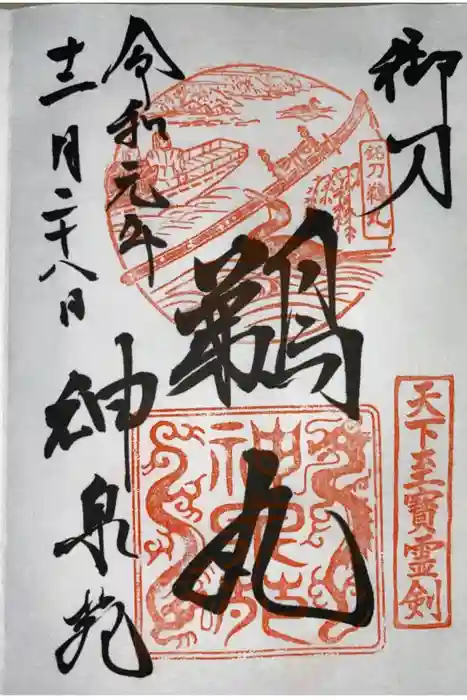 御刀
銘刀鵜丸
天下至寶霊剣
鵜丸
神泉苑
令和元年
十二月二十八日
神泉苑